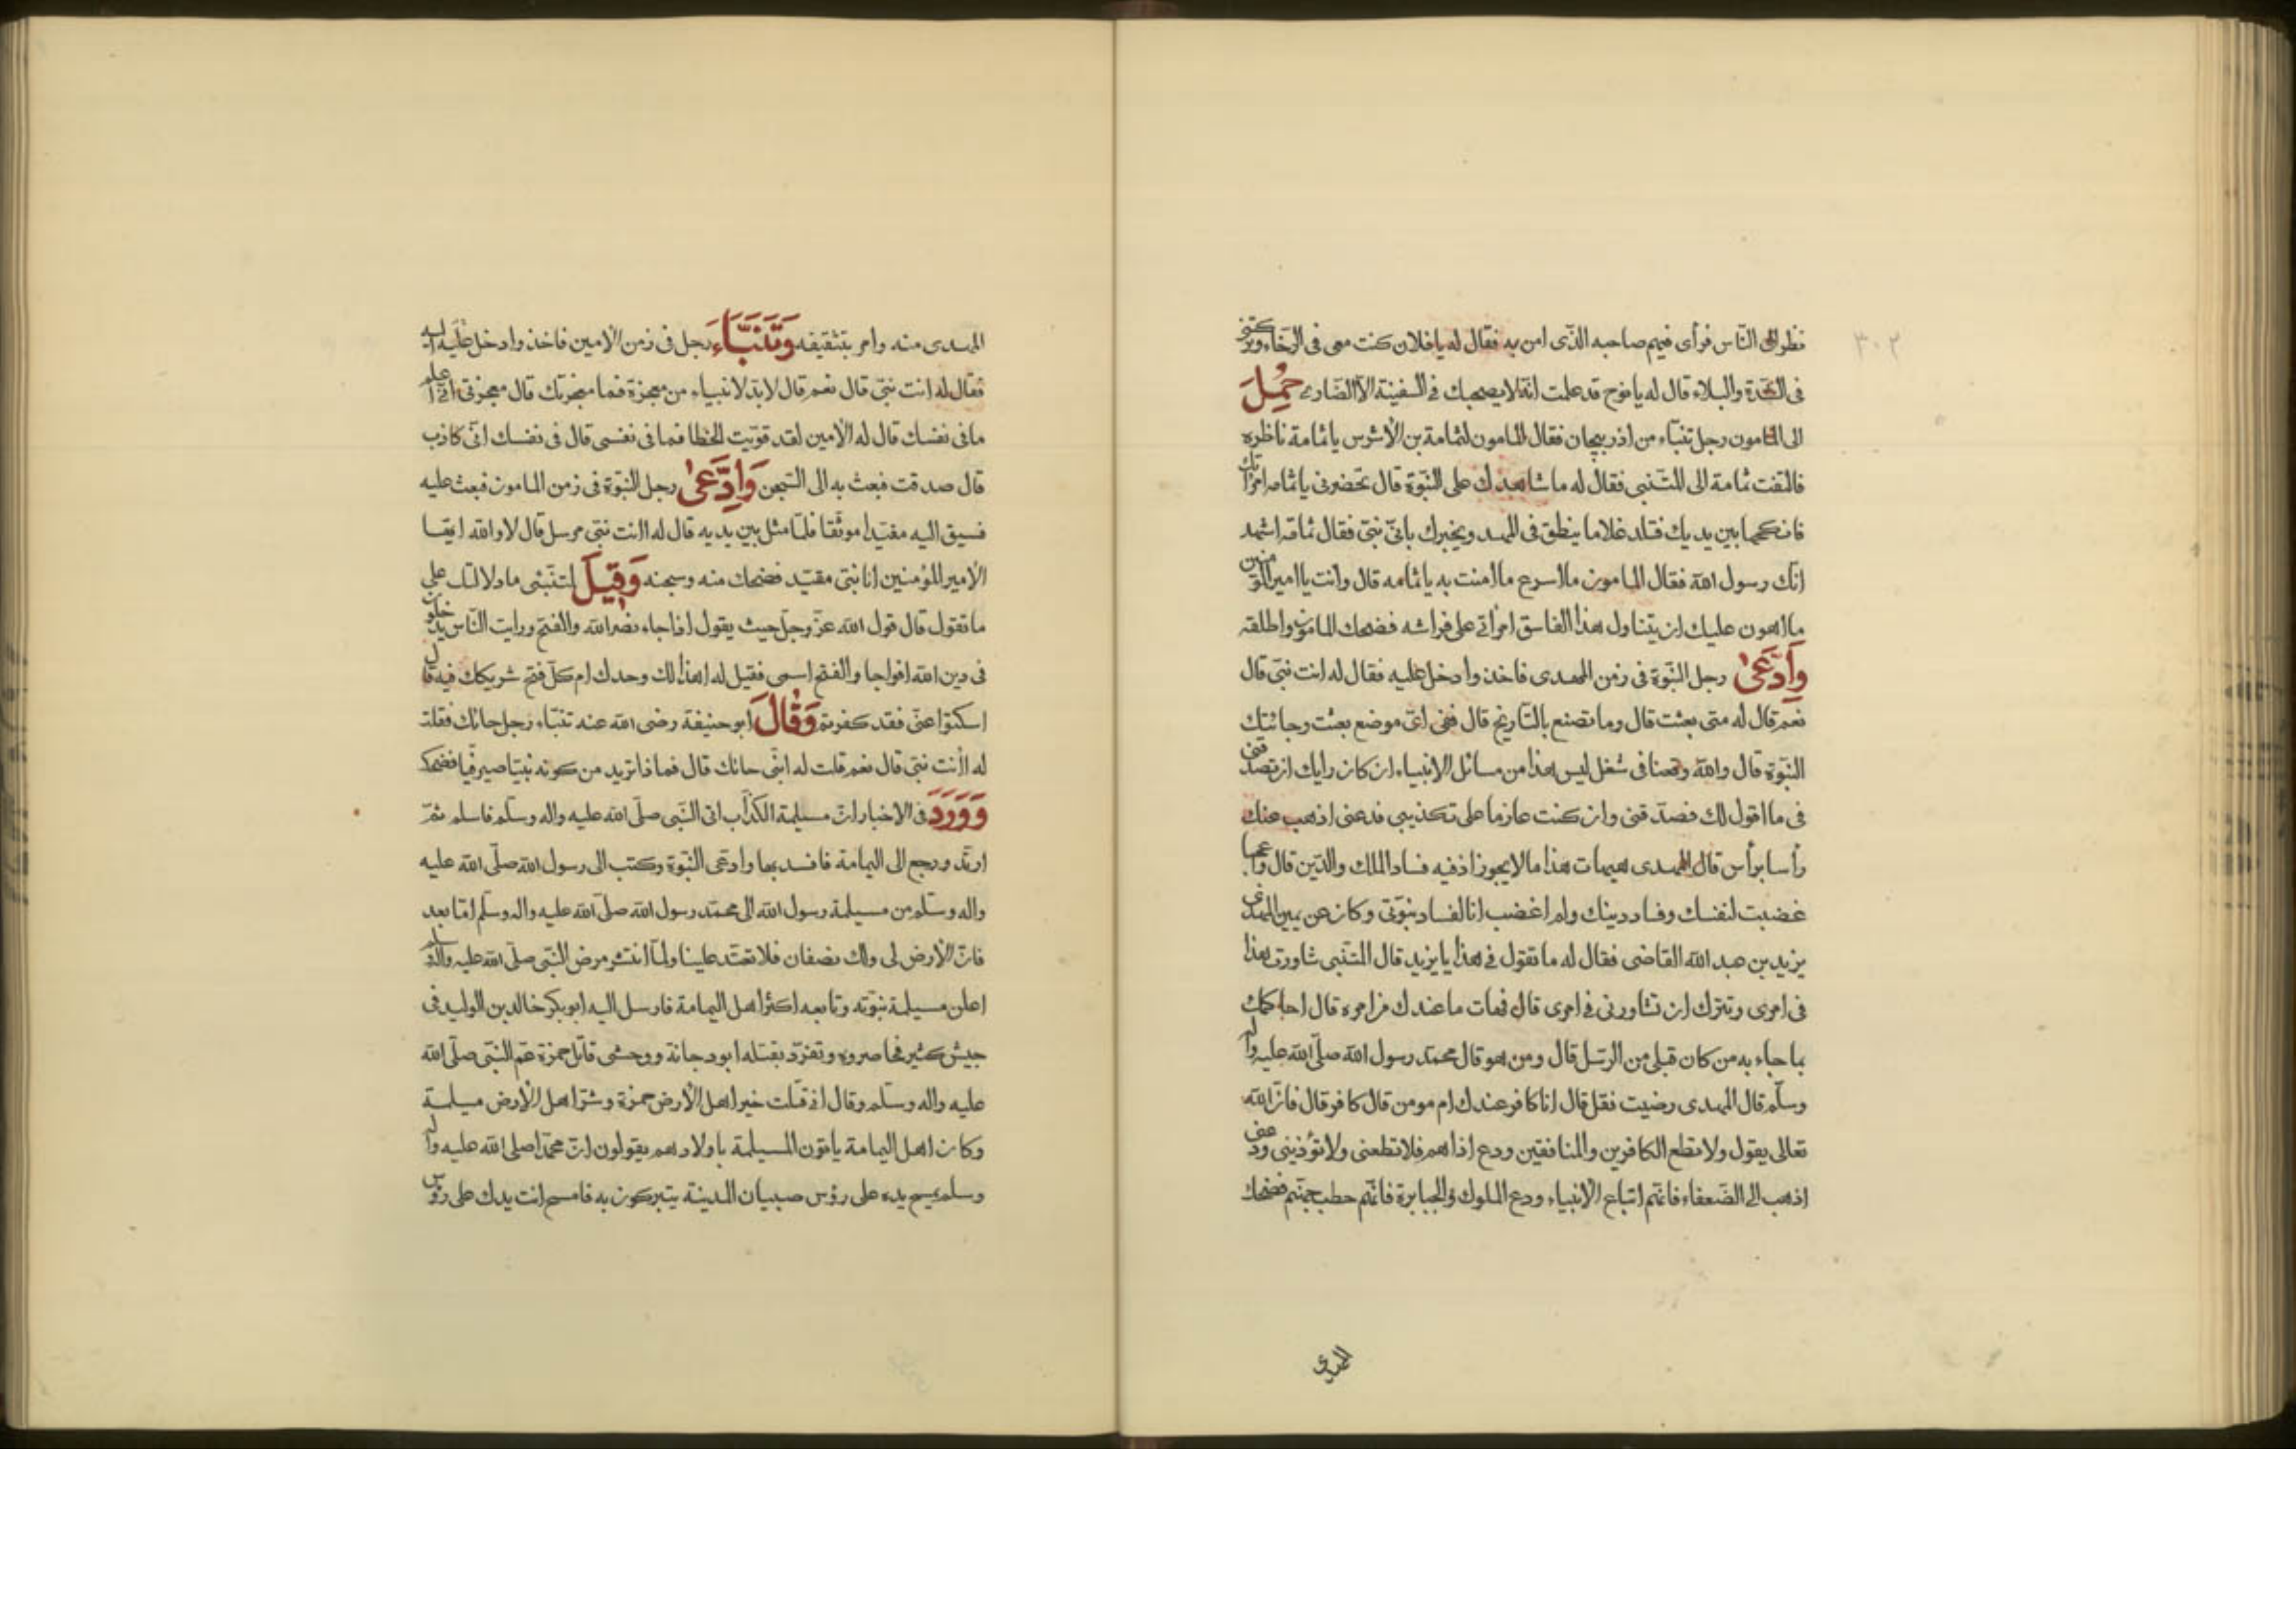 ٣٠٢
نظر الى النّاس فرأى فيهم صاحبه الذّى امن به فقال له يا فلان كنت معى فى الرّخاء وتركتنى
فى الشدة والبلاء قال له يا نوح قد علمت انّه لا يصحبك فى السفينة الّا النّصارى حُمِلَ
الى المامون رجل تنبّاء من اذربيجان فقال المامون لثمامة بن الأشرس يا ثمامة ناظره
فالتفت ثمامة الى المتنبى فقال له ما شاهدك على النّبوّة قال تحضرنى يا ثمامه امراتك
فانكحها بين يديك فتلد غلاما ينطق فى المهد ويخبرك بانّى نبىّ فقال ثمامه اشهد
انّك رسول الله فقال المامون ما اسرع ما امنت به يا ثمامه قال وانت يا امير المؤمنين
ما اهون عليك ان يتناول هذا الفاسق امراتى على فراشه فضحك المامون واطلقه
وَادَّعَىٰ رجل النّبوّة فى زمن المهدى فاخذ وادخل عليه فقال له انت نبىّ قال
نعم قال له متى بعثت قال وما تصنع بالتّاريخ قال ففى اىّ موضع بعثت وجائتك
النّبوّة قال والله وقعنا فى شغل ليس هذا من مسائل الانبياء ان كان رايك ان تصدقنى
فى ما اقول لك فصدّقنى وان كنت عازما على تكذيبى فدعنى اذهب عنك
رأسا برأس قال المهدى هيهات هذا ما لا يجوز اذ فيه فساد الملك والدّين قال واعجبا
غضبت لنفسك وفساد دينك ولم اغضب انا لفساد نبوّتى وكان عن يمين المهدى
يزيد بن عبد الله القاضى فقال له ما تقول فى هذا يا يزيد قال المتنبى شاورت هذا
فى امرى وتترك ان تشاورنى فى امرى قال فهات ما عندك من امره قال احاكمك
بما جاء به من كان قبلى من الرّسل قال ومن هو قال محمّد رسول الله صلّى الله عليه واله
وسلّم قال المهدى رضيت فقل قال انا كافر عندك ام مومن قال كافر قال فانّ الله
تعالى يقول ولا تطع الكافرين والمنافقين ودع اذاهم فلا تطعنى ولا تؤذينى ودعنى
اذهب الى الضّعفاء فانّهم اتباع الانبياء ودع الملوك والجبابرة فانّهم حطب جهنّم فضحك
المهدى
المهدى منه وامر بتثقيفه وَتَنَبَّاءَ رجل فى زمن الامين فاخذ وادخل عليه
فقال له انت نبىّ قال نعم قال لا بدّ لانبياء من معجزة فما معجزتك قال معجزتى انّى اعلم
ما فى نفسك قال له الامين لقد قوّيت الخطا فما فى نفسى قال فى نفسك انّى كاذب
قال صدقت فبعث به الى السّجن وَادَّعَىٰ رجل النّبوّة فى زمن المامون فبعث عليه
فسيق اليه مقيّدا موثّقا فلمّا مثل بين يديه قال له اانت نبىّ مرسل قال لا والله ايّها
الامير المؤمنين انا نبىّ مقيّد فضحك منه وسجنه وَقِيلَ لمتنبّئى ما دلالتك على
ما تقول قال قول الله عزّ وجلّ حيث يقول اذا جاء نصر الله والفتح ورايت النّاس يدخلون
فى دين الله افواجا والفتح اسمى فقيل له اهذا لك وحدك ام كلّ فتح شريكك فيه قال
اسكتوا عنّى فقد كفرتم وَقَالَ ابو حنيفة رضى الله عنه تنبّاء رجل حائك فقلت
له اانت نبىّ قال نعم قلت له انّى حائك قال فما ذا تريد من كونه نبيّا صيرفيّا فضحك
وَوَرَدَ فى الاخبار انّ مسيلمة الكذّاب اتى النّبى صلّى الله عليه واله وسلّم فاسلم ثمّ
ارتدّ ورجع الى اليمامة فافسد بها وادّعى النّبوّة وكتب الى رسول الله صلّى الله عليه
واله وسلّم من مسيلمة رسول الله الى محمّد رسول الله صلّى الله عليه واله وسلّم امّا بعد
فانّ الأرض لى ولك نصفان فلا تعتد علينا ولمّا انتشر مرض النّبى صلّى الله عليه واله وسلم
اعلن مسيلمة نبوّته وتابعه اكثر اهل اليمامة فارسل اليه ابو بكر خالد بن الوليد فى
جيش كثير فحاصروه وتفرّد بقتله ابو دجانة ووحشى قاتل حمزة عمّ النّبى صلّى الله
عليه واله وسلّم وقال اذ قتلت خير اهل الأرض حمزة وشرّ اهل الأرض مسيلمة
وكان اهل اليمامة ياتون المسيلمة باولادهم يقولون انّ محمّدا صلى الله عليه واله
وسلم يمسح يده على رؤس صبيان المدينة يتبركون به فامسح انت يدك على رؤس